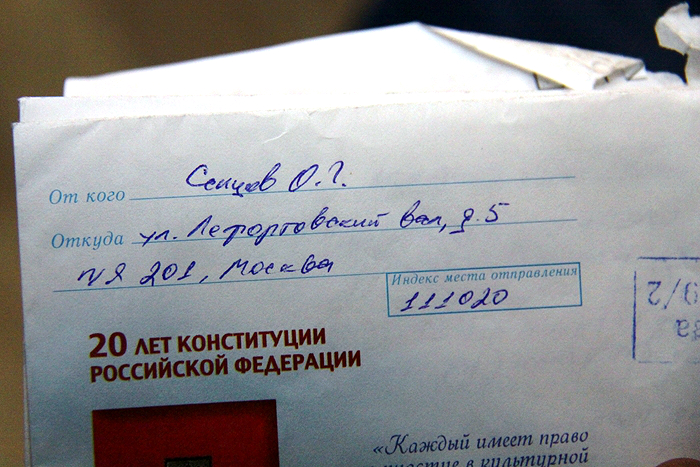 От кого Сенцов О.Г.
Откуда ул. Лефортовский вал, д. 5
п/я 201, Москва
Индекс места отправления
111020
20 ЛЕТ КОНСТИТУЦИИ
РОССИЙСКОЙ ФЕДЕРАЦИИ
«Каждый имеет право
участие в культурной